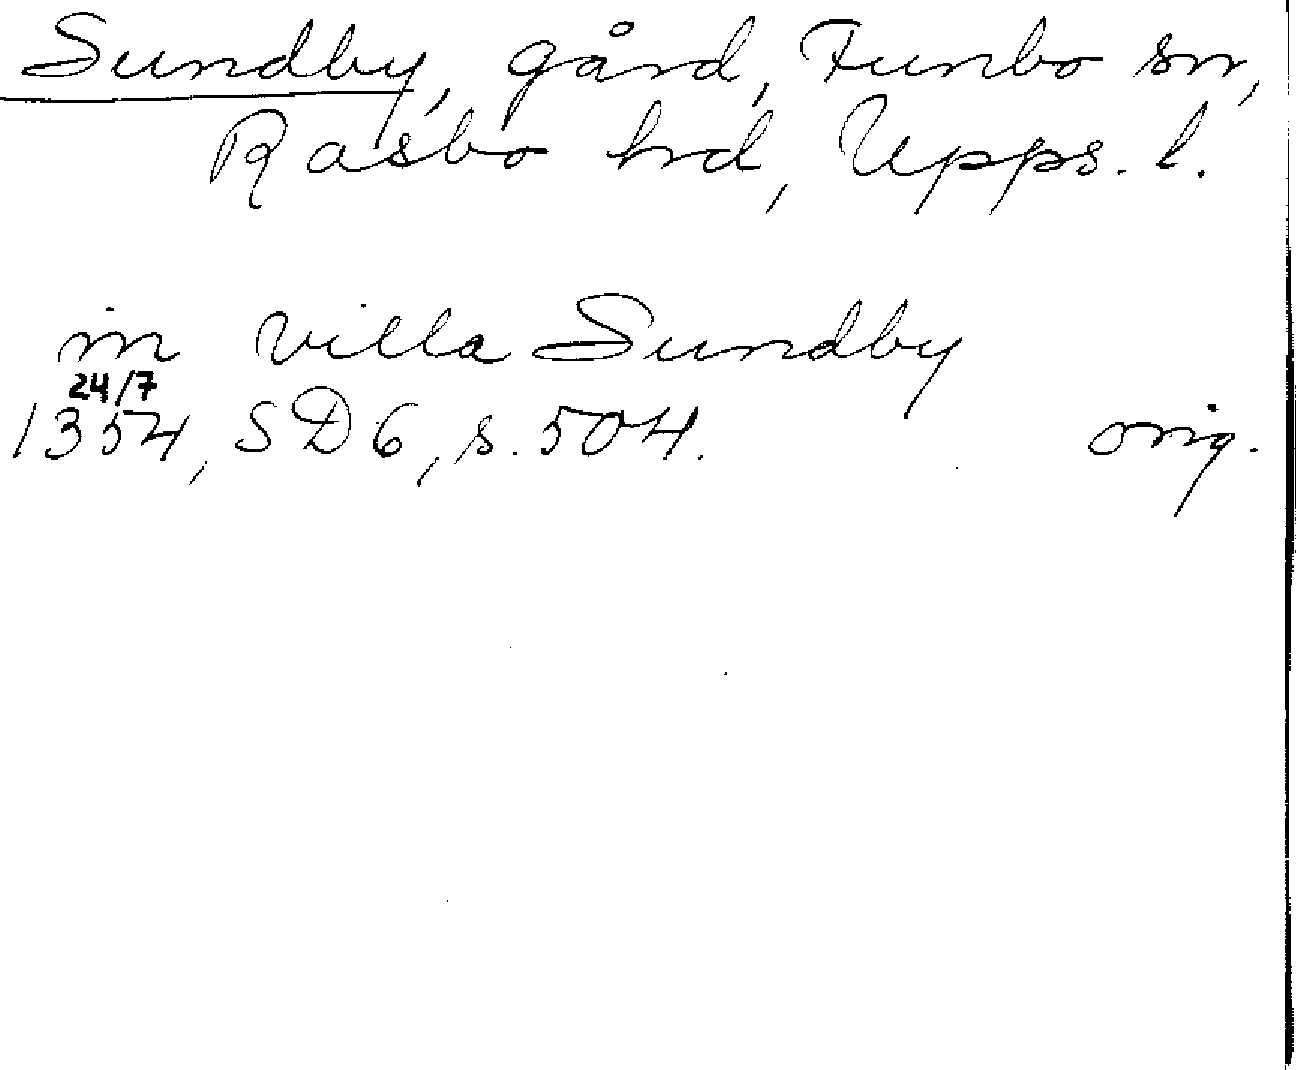 Sundby, gård, Funbo sn,
Rasbo hd, Upps. l.
in villa Sundby
24/7
1354, SD6, s. 504. orig.